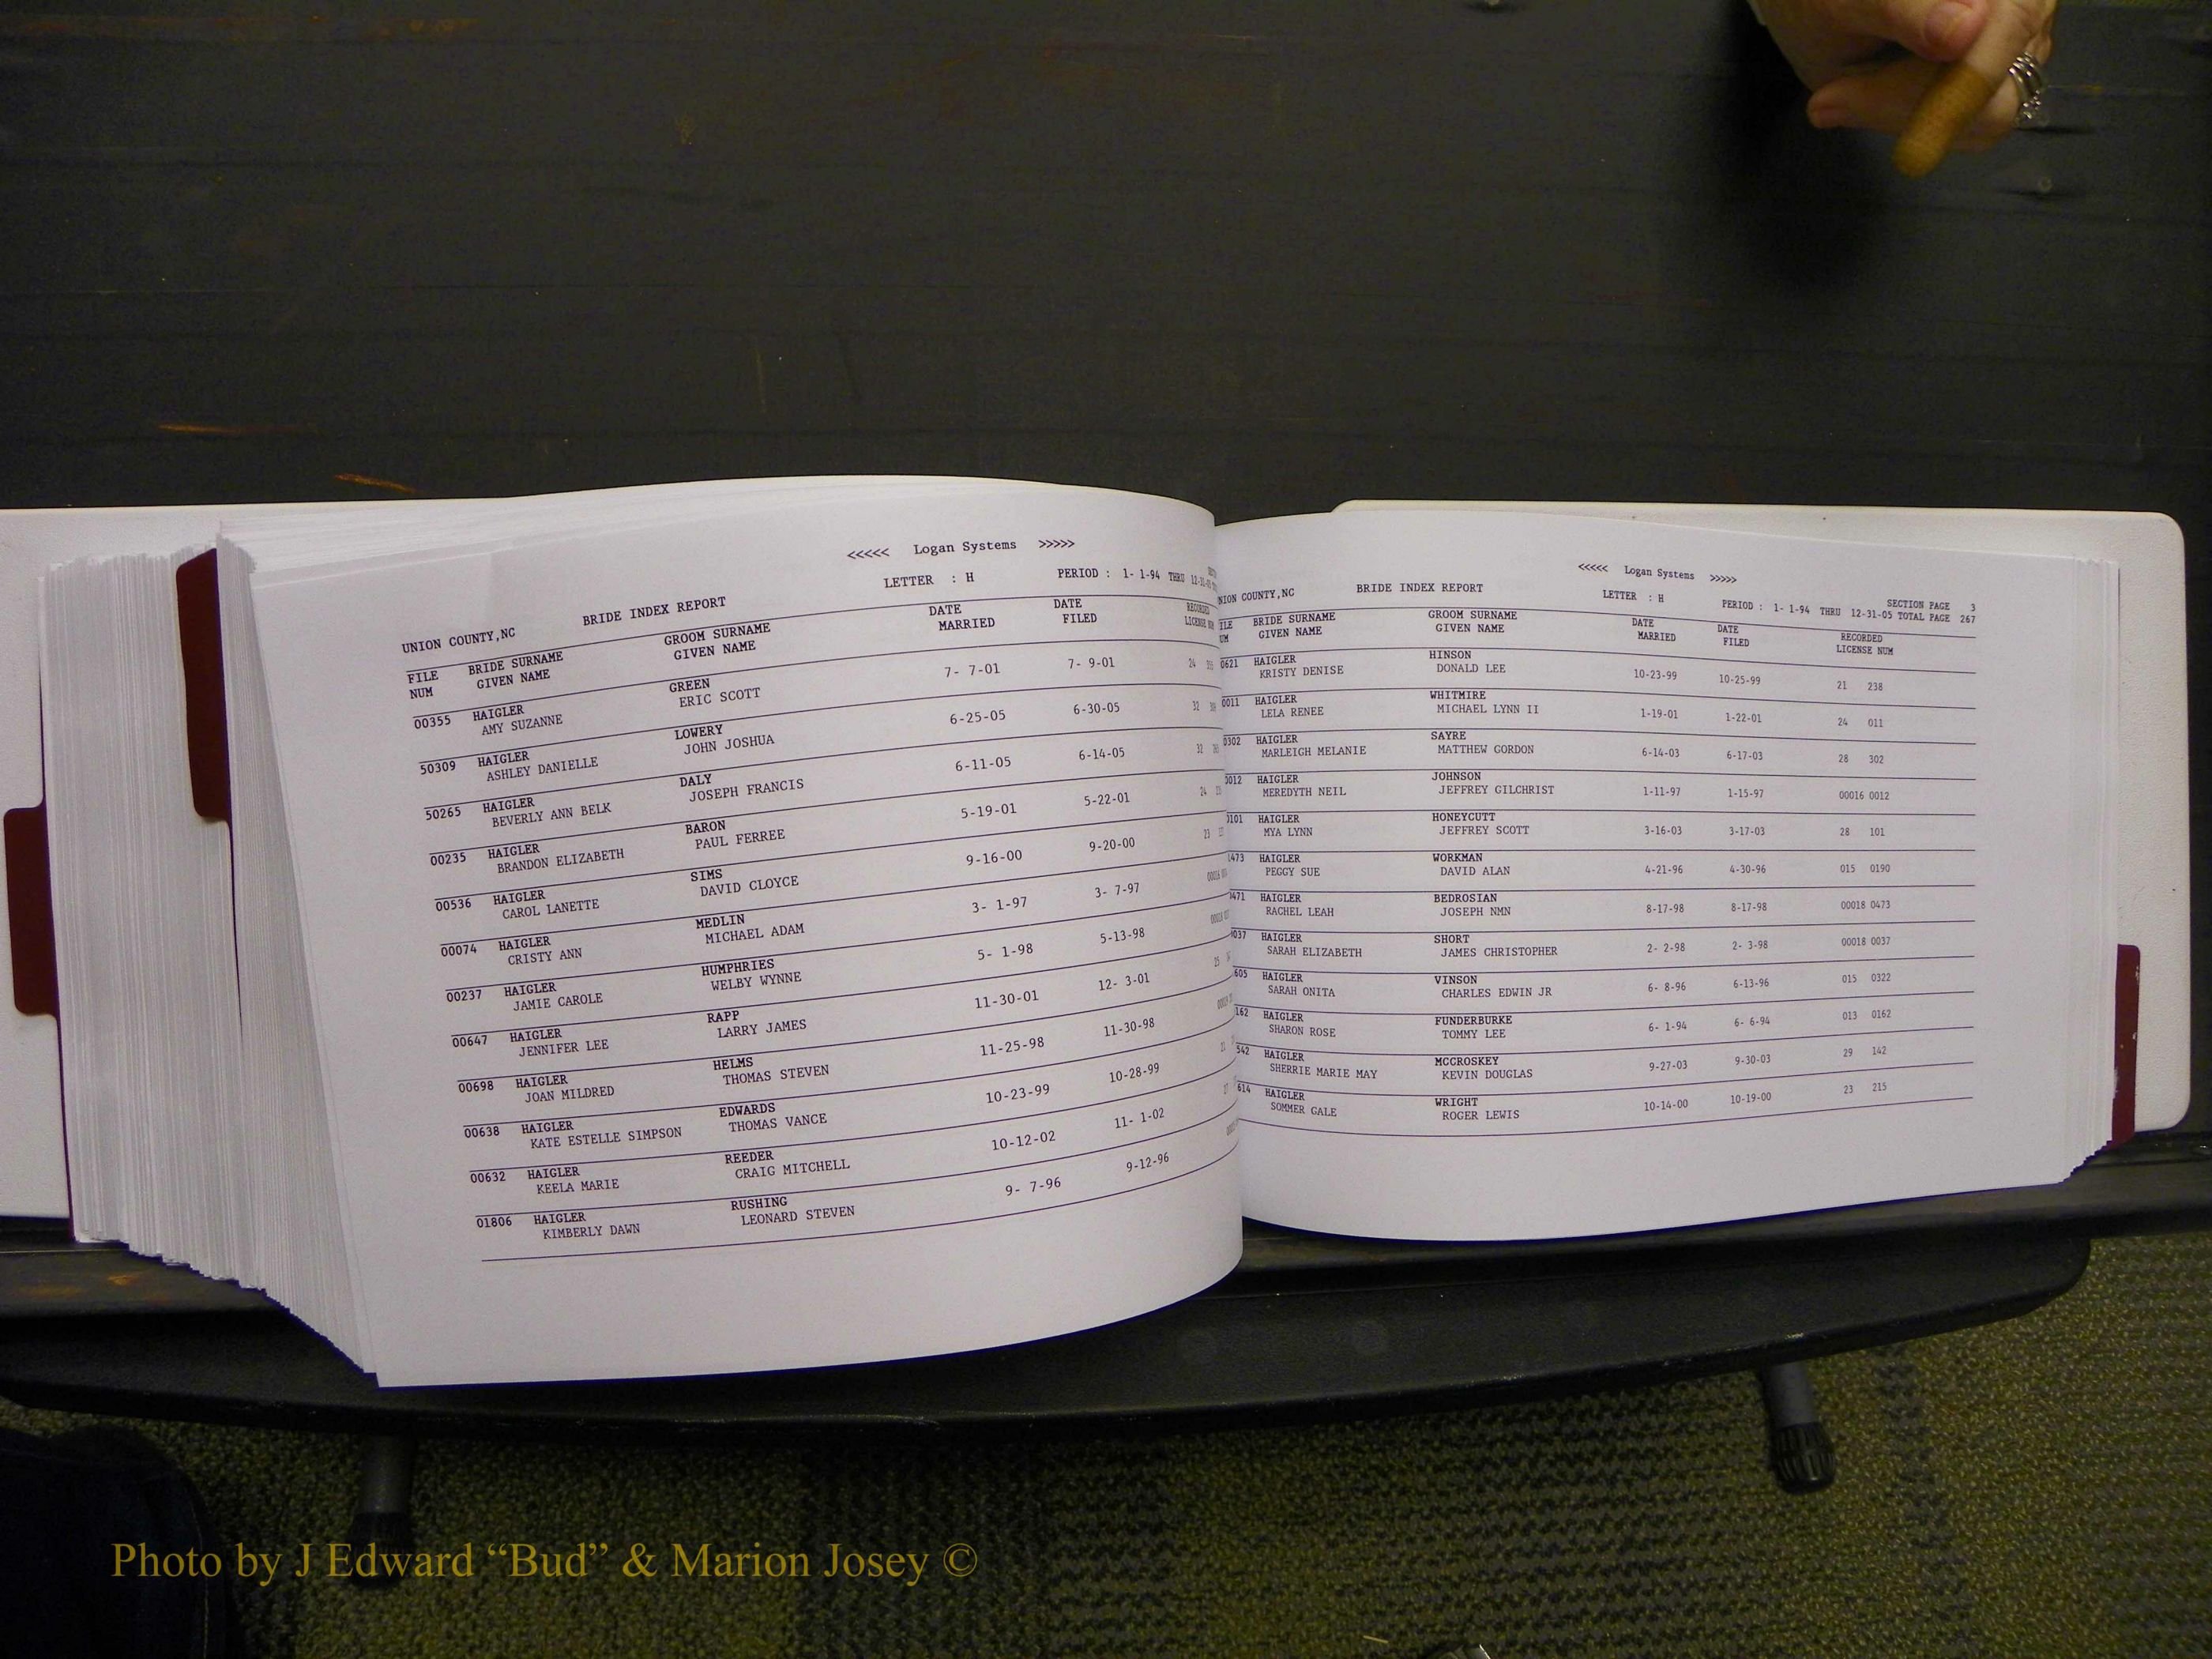 <<<<< Logan Systems >>>>>
LETTER : H PERIOD : 1- 1-94 THRU
UNION COUNTY,NC BRIDE INDEX REPORT
FILE BRIDE SURNAME GROOM SURNAME DATE DATE RECORDED
NUM GIVEN NAME GIVEN NAME MARRIED FILED LICENSE NUM
00355 HAIGLER GREEN 7- 7-01 7- 9-01 24
AMY SUZANNE ERIC SCOTT
50309 HAIGLER LOWERY 6-25-05 6-30-05 32
ASHLEY DANIELLE JOHN JOSHUA
50265 HAIGLER DALY 6-11-05 6-14-05 32
BEVERLY ANN BELK JOSEPH FRANCIS
00235 HAIGLER BARON 5-19-01 5-22-01 24
BRANDON ELIZABETH PAUL FERREE
00536 HAIGLER SIMS 9-16-00 9-20-00 23
CAROL LANETTE DAVID CLOYCE
00074 HAIGLER MEDLIN 3- 1-97 3- 7-97 00016
CRISTY ANN MICHAEL ADAM
00237 HAIGLER HUMPHRIES 5- 1-98 5-13-98 00018
JAMIE CAROLE WELBY WYNNE
00647 HAIGLER RAPP 11-30-01 12- 3-01 25
JENNIFER LEE LARRY JAMES
00698 HAIGLER HELMS 11-25-98 11-30-98
JOAN MILDRED THOMAS STEVEN
00638 HAIGLER EDWARDS 10-23-99 10-28-99
KATE ESTELLE SIMPSON THOMAS VANCE
00632 HAIGLER REEDER 10-12-02 11- 1-02
KEELA MARIE CRAIG MITCHELL
01806 HAIGLER RUSHING 9- 7-96 9-12-96
KIMBERLY DAWN LEONARD STEVEN
<<<<< Logan Systems >>>>>
NION COUNTY,NC BRIDE INDEX REPORT LETTER : H SECTION PAGE 3
PERIOD : 1- 1-94 THRU 12-31-05 TOTAL PAGE 267
ILE BRIDE SURNAME GROOM SURNAME DATE DATE RECORDED
UM GIVEN NAME GIVEN NAME MARRIED FILED LICENSE NUM
0621 HAIGLER HINSON 10-23-99 10-25-99 21 238
KRISTY DENISE DONALD LEE
0011 HAIGLER WHITMIRE 1-19-01 1-22-01 24 011
LELA RENEE MICHAEL LYNN II
0302 HAIGLER SAYRE 6-14-03 6-17-03 28 302
MARLEIGH MELANIE MATTHEW GORDON
0012 HAIGLER JOHNSON 1-11-97 1-15-97 00016 0012
MEREDYTH NEIL JEFFREY GILCHRIST
0101 HAIGLER HONEYCUTT 3-16-03 3-17-03 28 101
MYA LYNN JEFFREY SCOTT
473 HAIGLER WORKMAN 4-21-96 4-30-96 015 0190
PEGGY SUE DAVID ALAN
471 HAIGLER BEDROSIAN 8-17-98 8-17-98 00018 0473
RACHEL LEAH JOSEPH NMN
037 HAIGLER SHORT 2- 2-98 2- 3-98 00018 0037
SARAH ELIZABETH JAMES CHRISTOPHER
605 HAIGLER VINSON 6- 8-96 6-13-96 015 0322
SARAH ONITA CHARLES EDWIN JR
162 HAIGLER FUNDERBURKE 6- 1-94 6- 6-94 013 0162
SHARON ROSE TOMMY LEE
542 HAIGLER MCCROSKEY 9-27-03 9-30-03 29 142
SHERRIE MARIE MAY KEVIN DOUGLAS
614 HAIGLER WRIGHT 10-14-00 10-19-00 23 215
SOMMER GALE ROGER LEWIS
Photo by J Edward “Bud” & Marion Josey ©